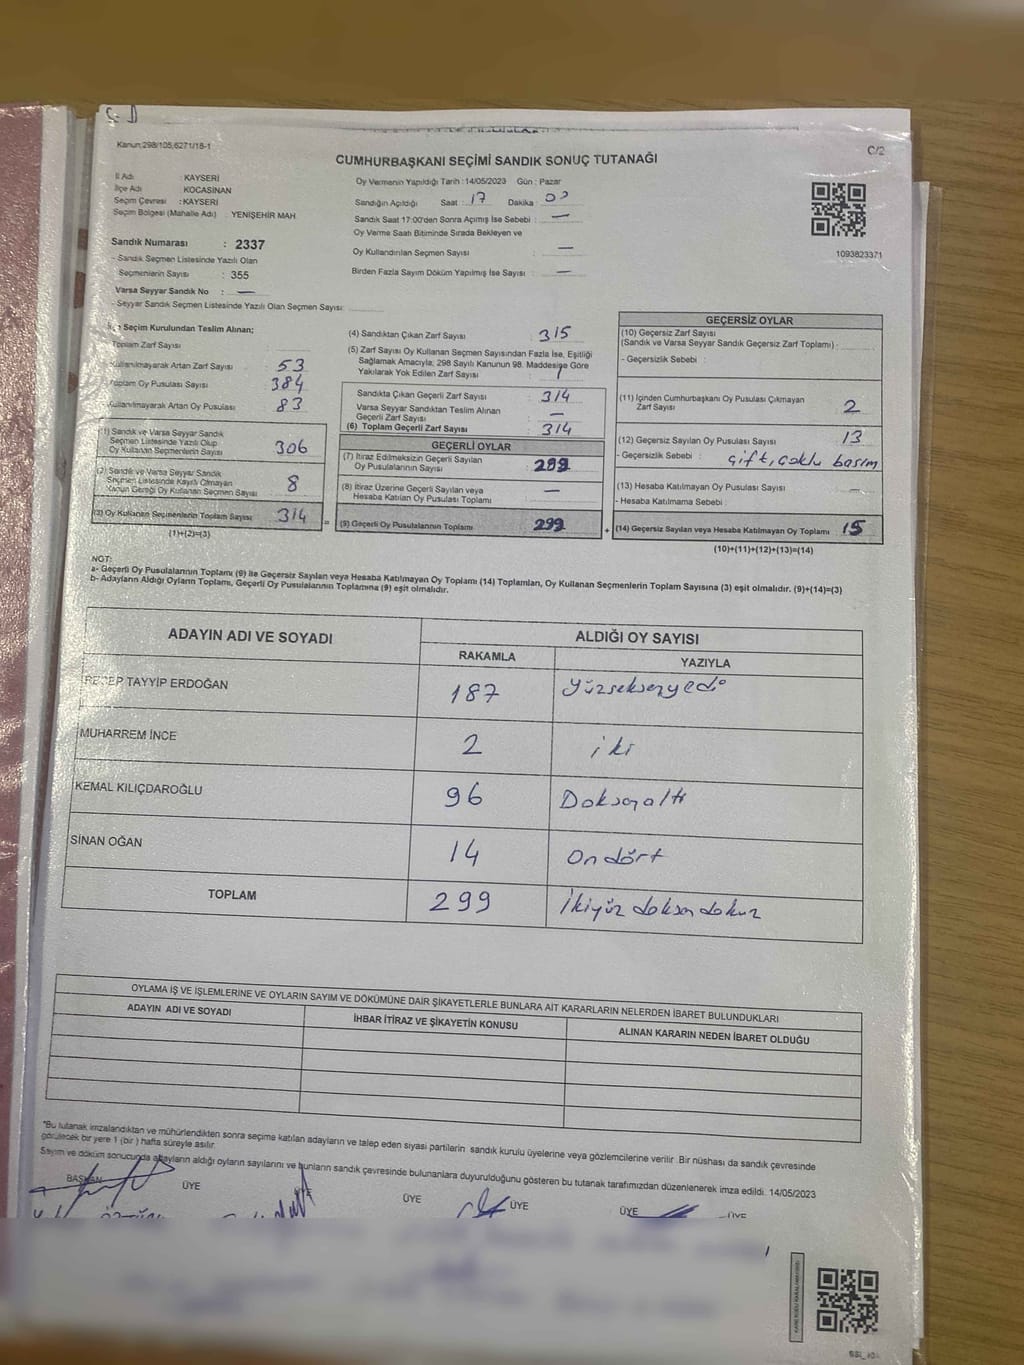 Kanun;298/105,6271/18-1
C/2
CUMHURBAŞKANI SEÇİMİ SANDIK SONUÇ TUTANAĞI
İl Adı : KAYSERİ
İlçe Adı KOCASİNAN
Seçim Çevresi : KAYSERİ
Seçim Bölgesi (Mahalle Adı) : YENİŞEHİR MAH
Sandık Numarası : 2337
- Sandık Seçmen Listesinde Yazılı Olan
Seçmenlerin Sayısı : 355
Varsa Seyyar Sandık No : —
- Seyyar Sandık Seçmen Listesinde Yazılı Olan Seçmen Sayısı:
Oy Vermenin Yapıldığı Tarih : 14/05/2023 Gün : Pazar
Sandığın Açıldığı Saat : 17 Dakika :
Sandık Saat 17:00'den Sonra Açımış İse Sebebi : —
Oy Verme Saati Bitiminde Sırada Bekleyen ve
Oy Kullandırılan Seçmen Sayısı : —
Birden Fazla Sayım Döküm Yapılmış İse Sayısı : —
1093823371
Seçim Kurulundan Teslim Alınan;
Toplam Zarf Sayısı :
Kullanılmayarak Artan Zarf Sayısı : 53
Toplam Oy Pusulası Sayısı : 384
Kullanılmayarak Artan Oy Pusulası : 83
(1) Sandık ve Varsa Seyyar Sandık
Seçmen Listesinde Yazılı Olup
Oy Kullanan Seçmenlerin Sayısı 306
(2) Sandık ve Varsa Seyyar Sandık
Seçmen Listesinde Kayıtlı Olmayan
Kanun Gereği Oy Kullanan Seçmen Sayısı 8
(3) Oy Kullanan Seçmenlerin Toplam Sayısı 314
(1)+(2)=(3)
(4) Sandıktan Çıkan Zarf Sayısı : 315
(5) Zarf Sayısı Oy Kullanan Seçmen Sayısından Fazla İse, Eşitliği
Sağlamak Amacıyla; 298 Sayılı Kanunun 98. Maddesine Göre
Yakılarak Yok Edilen Zarf Sayısı : 1
Sandıkta Çıkan Geçerli Zarf Sayısı : 314
Varsa Seyyar Sandıktan Teslim Alınan
Geçerli Zarf Sayısı : —
(6) Toplam Geçerli Zarf Sayısı : 314
GEÇERLİ OYLAR
(7) İtiraz Edilmeksizin Geçerli Sayılan
Oy Pusulalarının Sayısı : 299
(8) İtiraz Üzerine Geçerli Sayılan veya
Hesaba Katılan Oy Pusulası Toplamı —
= (9) Geçerli Oy Pusulalarının Toplamı 299
GEÇERSİZ OYLAR
(10) Geçersiz Zarf Sayısı
(Sandık ve Varsa Seyyar Sandık Geçersiz Zarf Toplamı) :
- Geçersizlik Sebebi :
(11) İçinden Cumhurbaşkanı Oy Pusulası Çıkmayan
Zarf Sayısı : 2
(12) Geçersiz Sayılan Oy Pusulası Sayısı : 13
- Geçersizlik Sebebi : çift, çoklu basım
(13) Hesaba Katılmayan Oy Pusulası Sayısı : —
- Hesaba Katılmama Sebebi :
+ (14) Geçersiz Sayılan veya Hesaba Katılmayan Oy Toplamı 15
(10)+(11)+(12)+(13)=(14)
NOT:
a- Geçerli Oy Pusulalarının Toplamı (9) ile Geçersiz Sayılan veya Hesaba Katılmayan Oy Toplamı (14) Toplamları, Oy Kullanan Seçmenlerin Toplam Sayısına (3) eşit olmalıdır. (9)+(14)=(3)
b- Adayların Aldığı Oyların Toplamı, Geçerli Oy Pusulalarının Toplamına (9) eşit olmalıdır.
ADAYIN ADI VE SOYADI ALDIĞI OY SAYISI
RAKAMLA YAZIYLA
RECEP TAYYİP ERDOĞAN 187 Yüzseksenyedi
MUHARREM İNCE 2 iki
KEMAL KILIÇDAROĞLU 96 Doksanaltı
SİNAN OĞAN 14 On dört
TOPLAM 299 İkiyüz doksan dokuz
OYLAMA İŞ VE İŞLEMLERİNE VE OYLARIN SAYIM VE DÖKÜMÜNE DAİR ŞİKAYETLERLE BUNLARA AİT KARARLARIN NELERDEN İBARET BULUNDUKLARI
ADAYIN ADI VE SOYADI İHBAR İTİRAZ VE ŞİKAYETİN KONUSU ALINAN KARARIN NEDEN İBARET OLDUĞU
*Bu tutanak imzalandıktan ve mühürlendikten sonra seçime katılan adayların ve talep eden siyasi partilerin sandık kurulu üyelerine veya gözlemcilerine verilir. Bir nüshası da sandık çevresinde
görülecek bir yere 1 (bir ) hafta süreyle asılır.
Sayım ve döküm sonucunda adayların aldığı oyların sayılarını ve bunların sandık çevresinde bulunanlara duyurulduğunu gösteren bu tutanak tarafımızdan düzenlenerek imza edildi. 14/05/2023
BAŞKAN ÜYE ÜYE ÜYE ÜYE ÜYE ÜYE